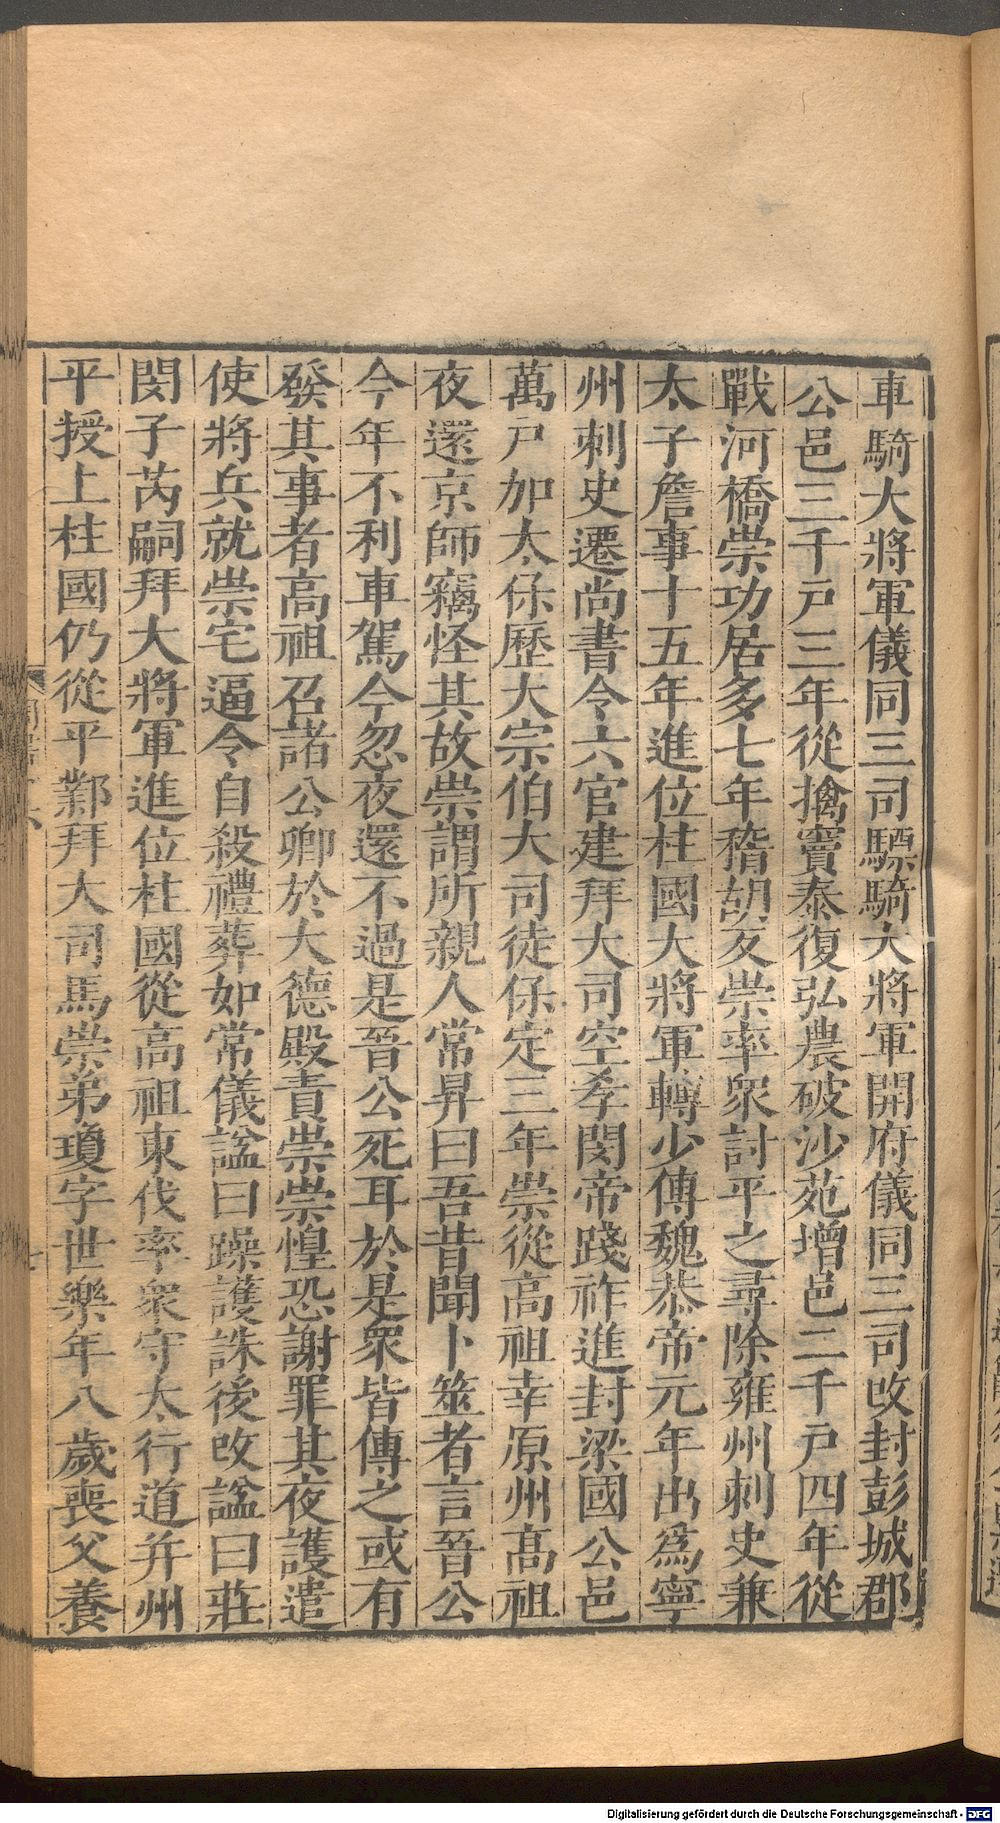 車騎大將軍儀同三司驃騎大將軍開府儀同三司改封彭城郡
公邑三千戸三年從擒竇泰復弘農破沙苑增邑二千戸四年從
戰河橋崇功居多七年稽胡反崇率眾討平之尋除雍州刺史兼
太子詹事十五年進位柱國大將軍轉少傅魏恭帝元年出爲寧
州刺史遷尚書令六官建拜大司空孝閔帝踐祚進封梁國公邑
萬戸加太保歷大宗伯大司徒保定三年崇從高祖幸原州高祖
夜還京師竊怪其故崇謂所親人常昇曰吾昔聞卜筮者言晉公
今年不利車駕今忽夜還不過是晉公死耳於是眾皆傳之或有
發其事者高祖召諸公卿於大德殿責崇崇惶恐謝罪其夜護遣
使將兵就崇宅逼令自殺禮葬如常儀諡曰躁護誅後改諡曰莊
閔子芮嗣拜大將軍進位柱國從高祖東伐率眾守太行道并州
平授上柱國仍從平鄴拜大司馬崇弟瓊字世樂年八歲喪父養
Digitalisierung gefördert durch die Deutsche Forschungsgemeinschaft - DFG